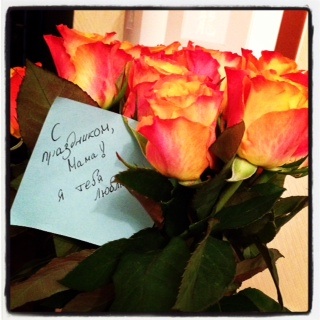 С
праздником,
Мама!
я тебя
люблю